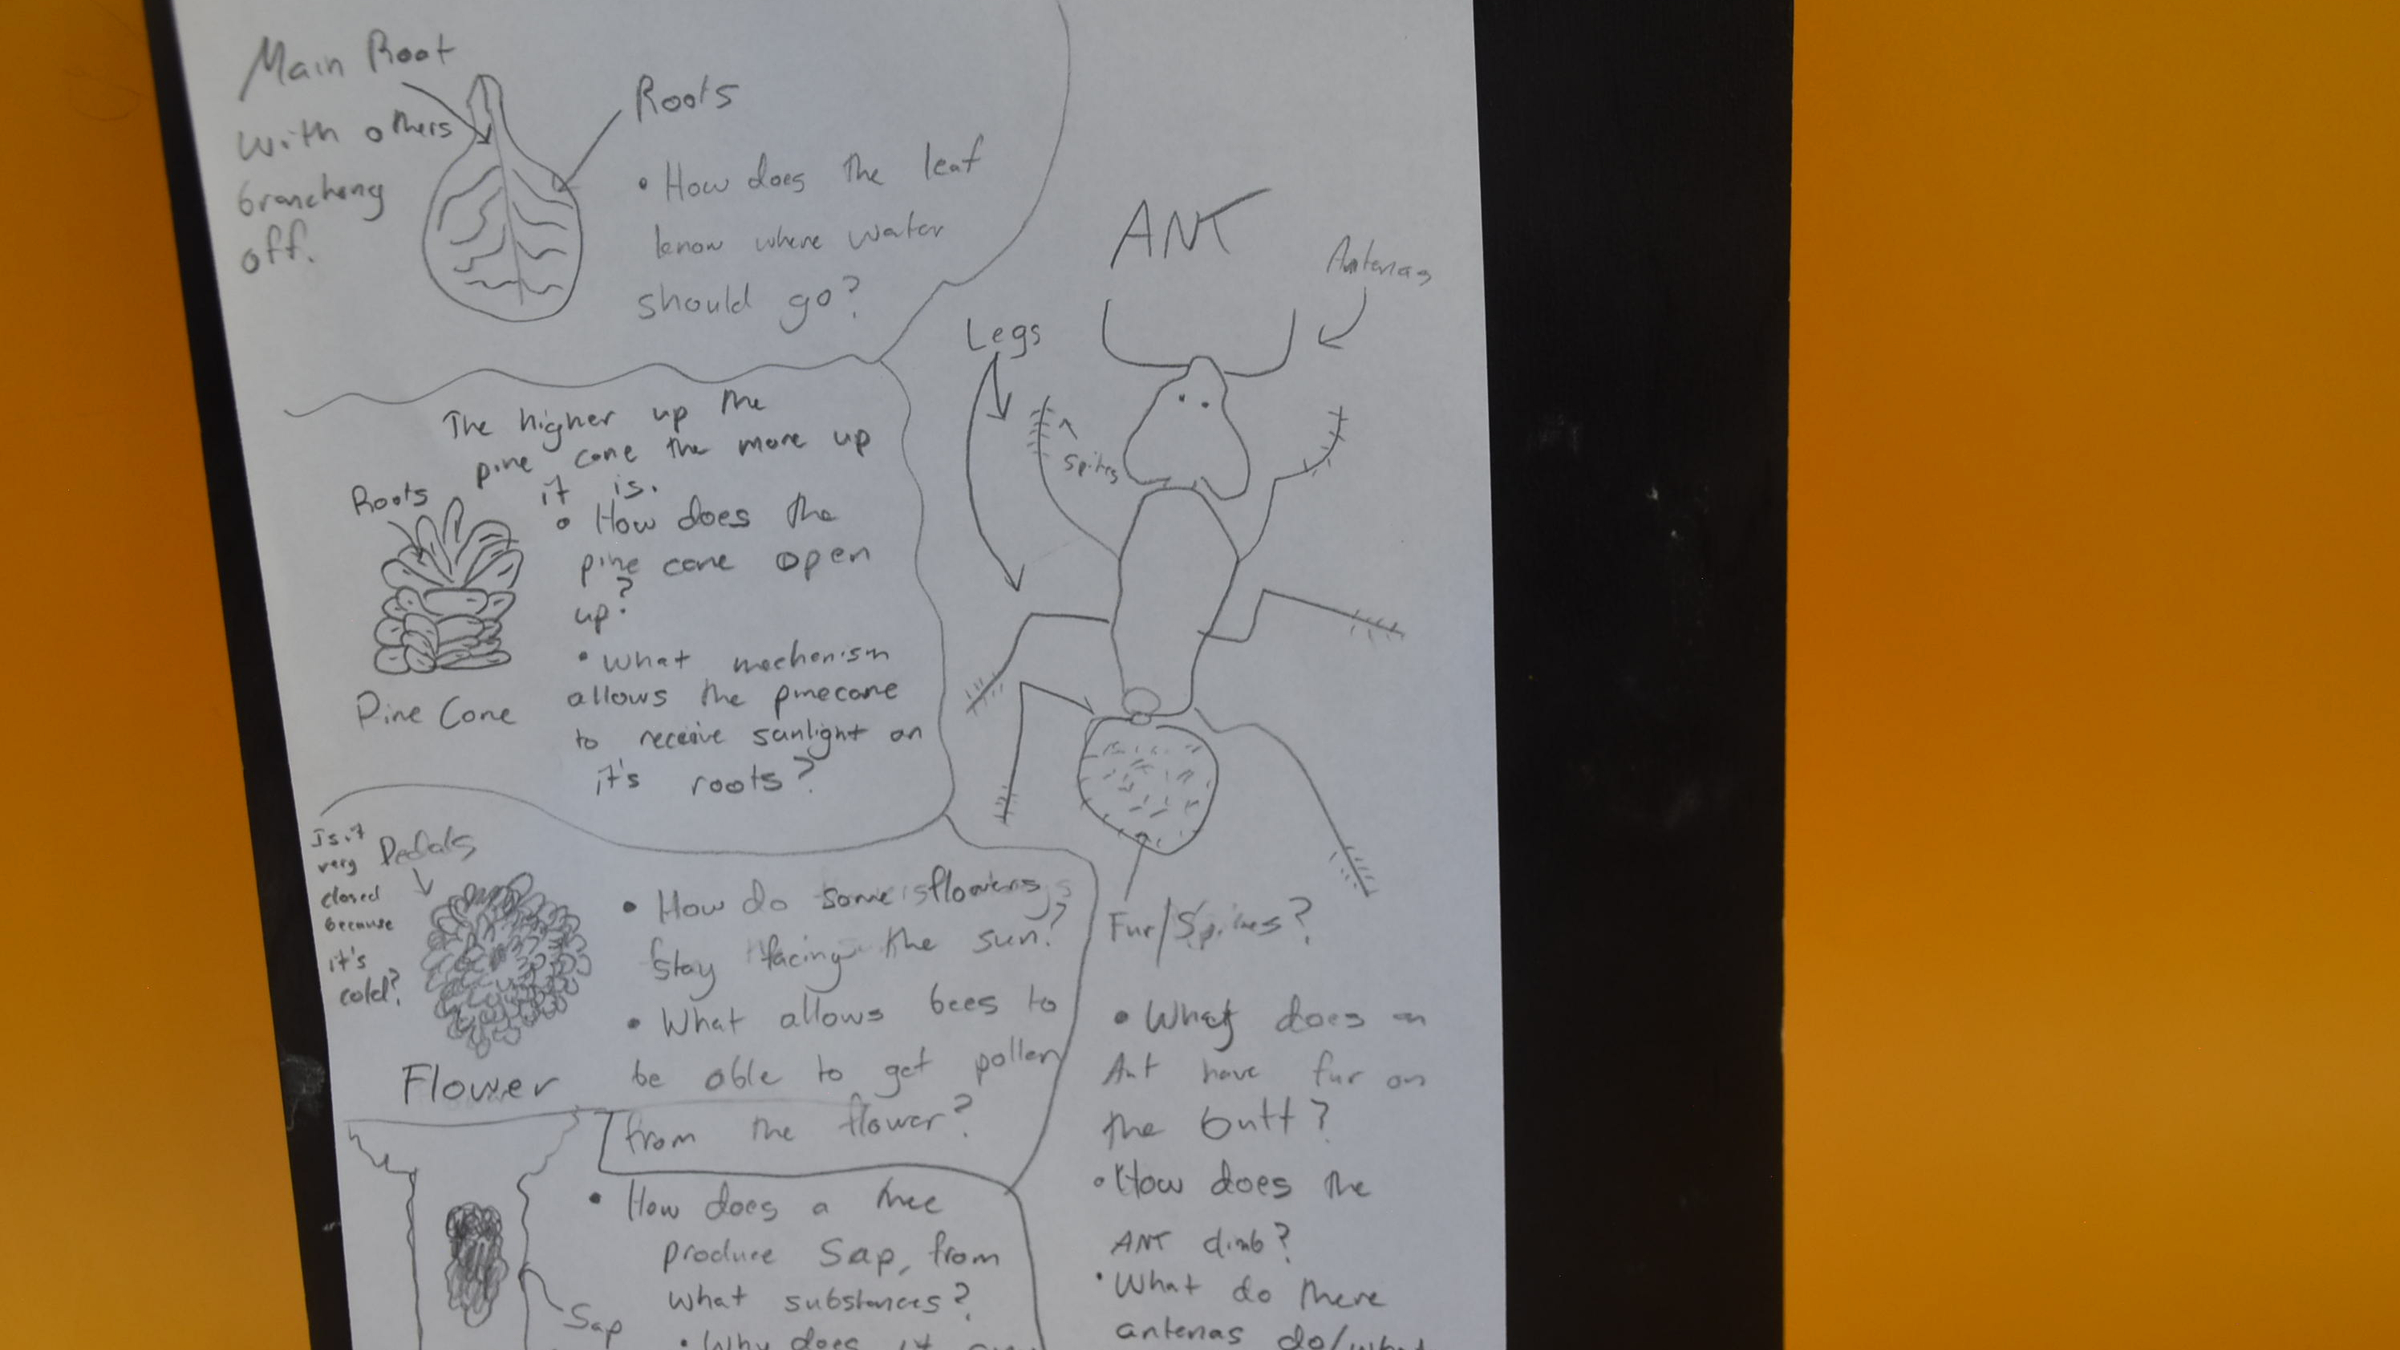 Main Root
with others
brancheng
off.
Roots
• How does the leaf
know where water
should go?
The higher up the
pine cone the more up
it is.
Roots
• How does the
pine cone open
up?
• What mechenism
allows the pinecone
to receive sunlight on
it's roots?
Pine Cone
Is it
very
closed
because
it's
cold?
Pedals
Flower
• How do some flowers
stay facing the sun?
• What allows bees to
be able to get pollen
from the flower?
• How does a tree
produce Sap, from
what substances?
• Why does it
Sap
ANT
Antenas
Legs
Spikes
Fur/Spikes?
• What does an
Ant have fur on
the butt?
• How does the
ANT climb?
• What do there
antenas do/what